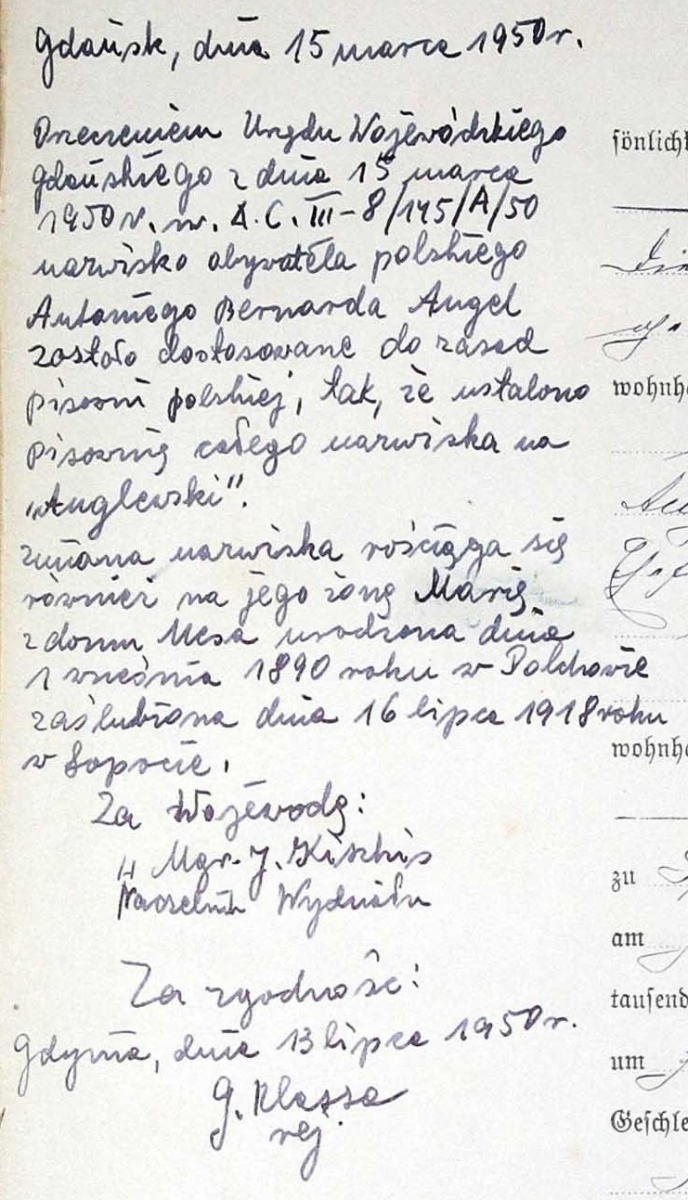 Gdańsk, dnia 15 marca 1950 r.
Orzeczeniem Urzędu Wojewódzkiego
Gdańskiego z dnia 15 marca
1950 r. nr. A.C. III-8/145/A/50
nazwisko obywatela polskiego
Antoniego Bernarda Angel
zostało dostosowane do zasad
pisowni polskiej, tak, że ustalono
pisownię całego nazwiska na
„Anglewski".
Zmiana nazwiska rościąga się
również na jego żonę Marię
z domu Mesa urodzona dnia
1 września 1890 roku w Połchowie
zaślubiona dnia 16 lipca 1918 roku
w Sopocie.
Za Wojewodę:
Mgr. J.
Naczelnik Wydziału
Za zgodność:
Gdynia, dnia 13 lipca 1950 r.
G. Klassa
rej.
sönlich
wohnh
wohnh
zu
am
tausend
um
Geschle